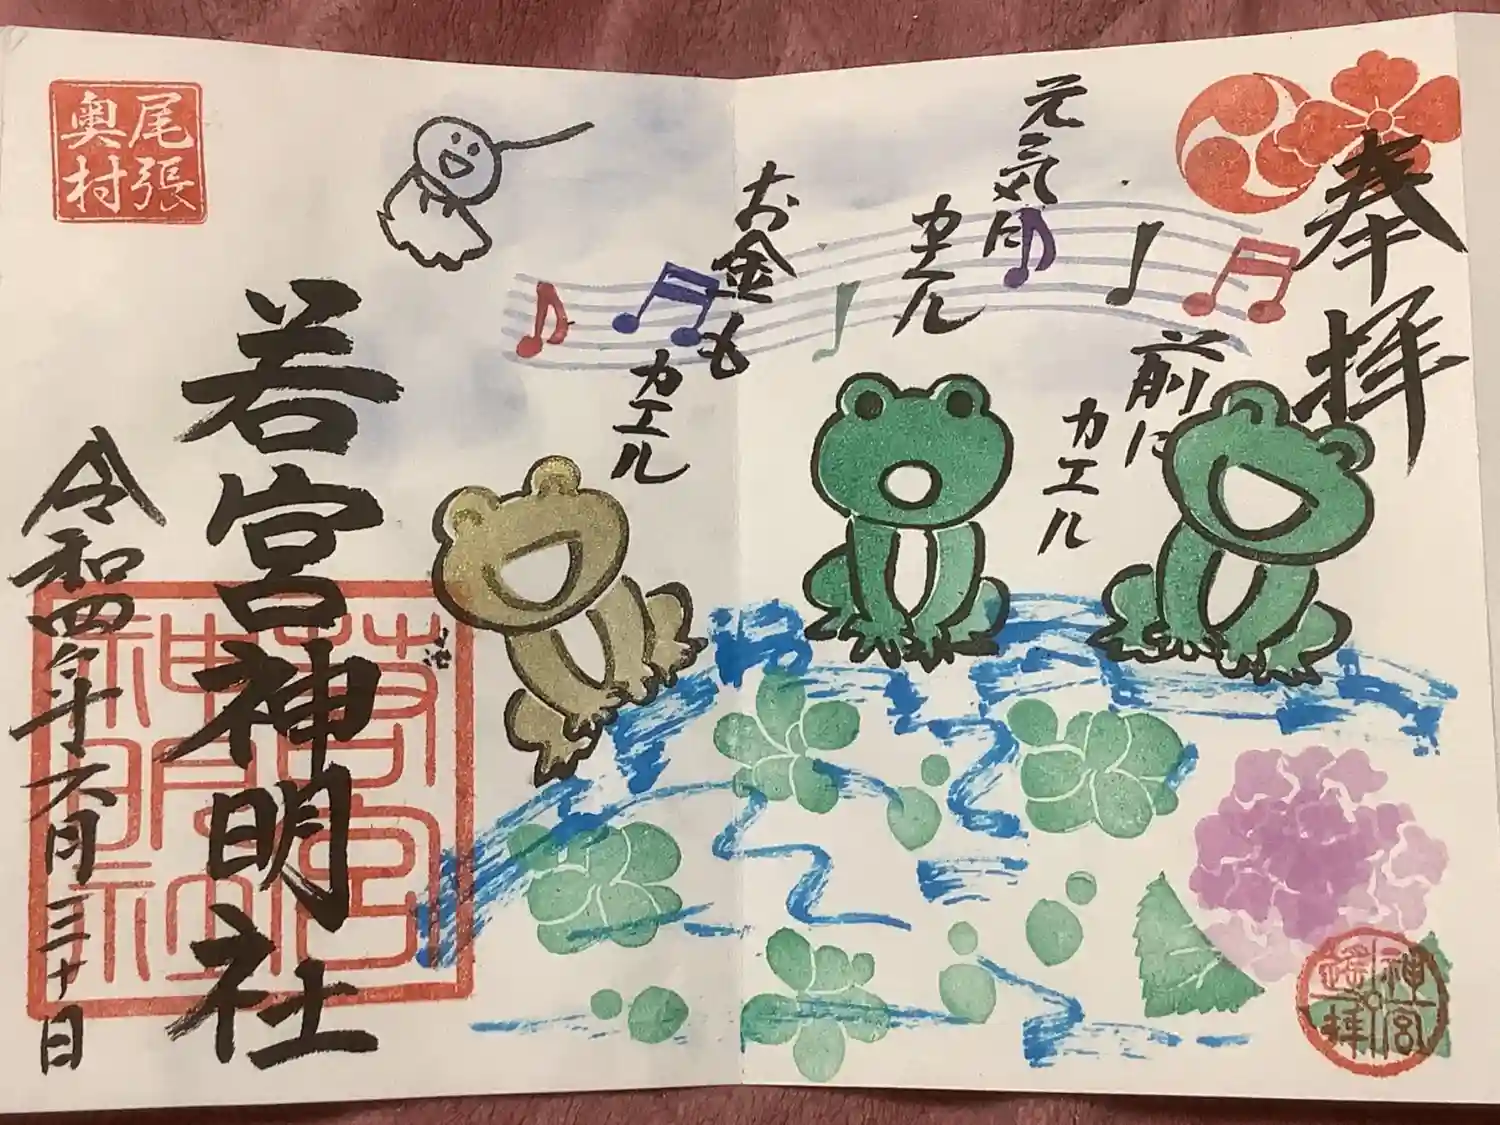 奉拝
前に
カエル
元気に
カエル
お金も
カエル
若宮神明社
令和四年六月三十日
尾張
奥村
神宮
遥拝
若宮
神明社